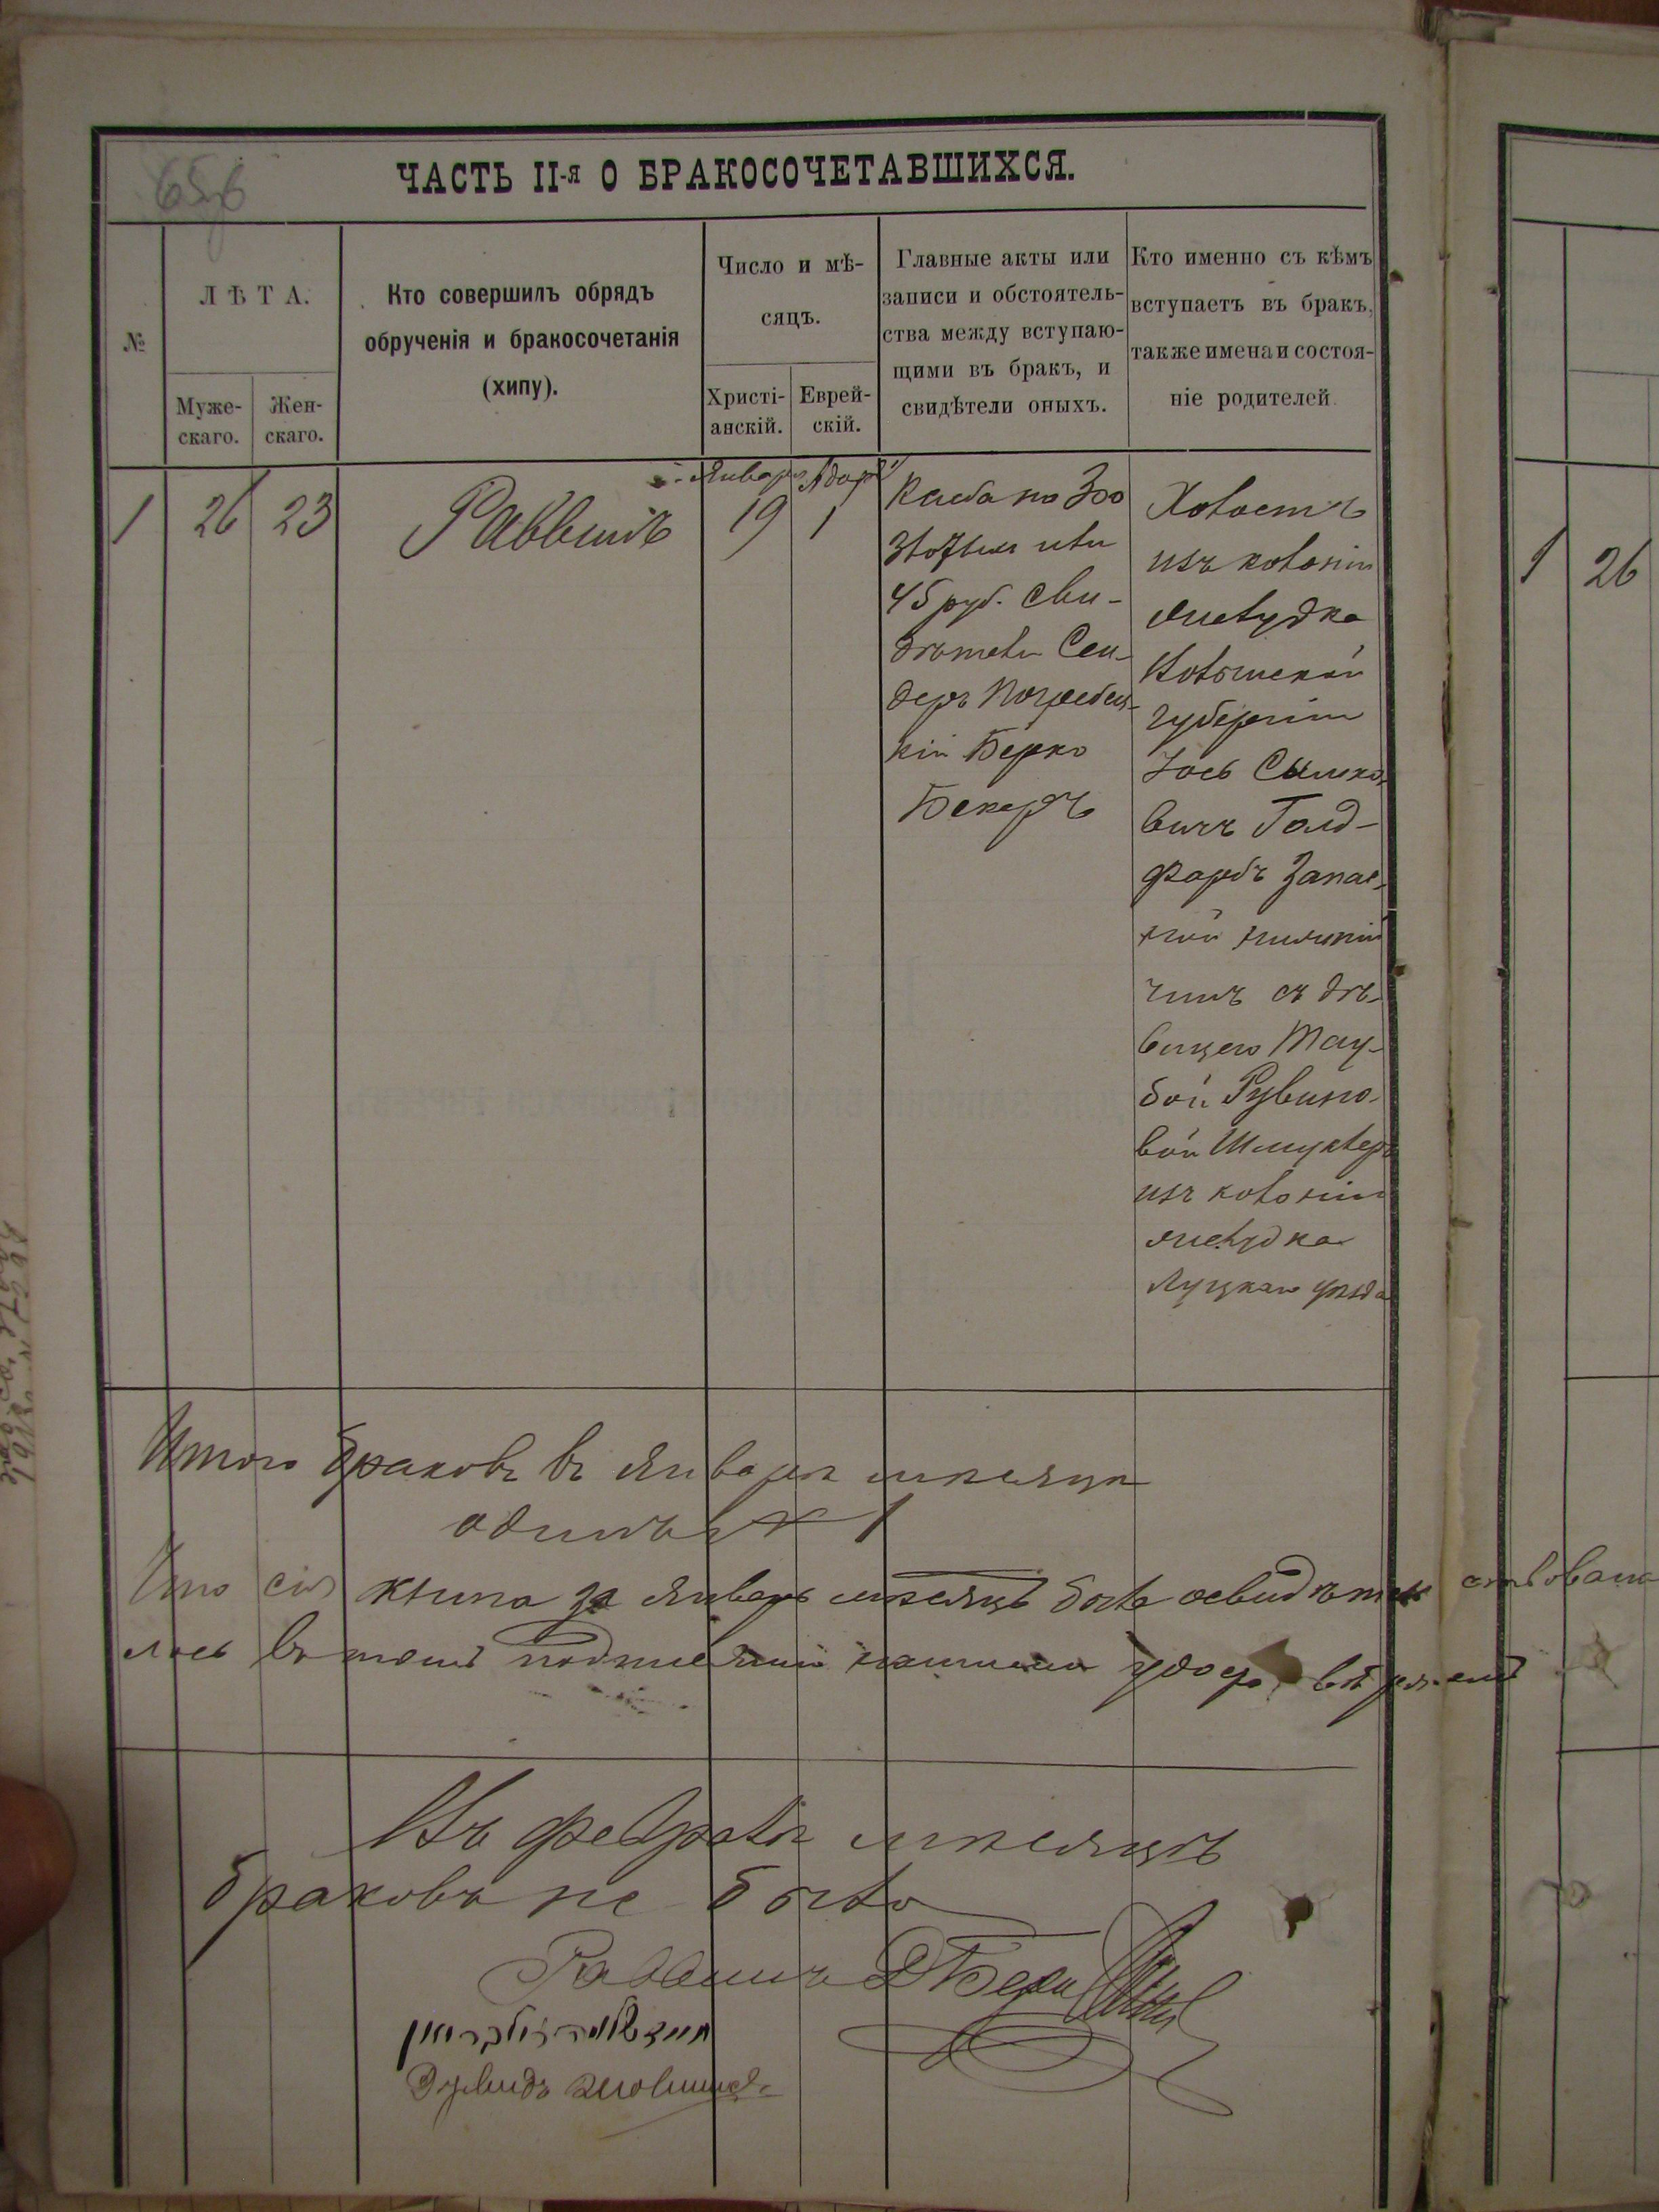 656
ЧАСТЬ II-я О БРАКОСОЧЕТАВШИХСЯ.
№
ЛѢТА.
Муже-
скаго.
Жен-
скаго.
Кто совершилъ обрядъ
обрученія и бракосочетанія
(хипу).
Число и мѣ-
сяцъ.
Христі-
анскій.
Еврей-
скій.
Главные акты или
записи и обстоятель-
ства между вступаю-
щими въ бракъ, и
свидѣтели оныхъ.
Кто именно съ кѣмъ
вступаетъ въ бракъ,
также имена и состоя-
ніе родителей
1
26
23
Раввинъ
Январь
19
Адаръ
1
на 300
злотыхъ или
45 руб. сви-
дѣтели Сен-
деръ Погребец-
кій Берко
Бекеръ
Холостъ
изъ колоніи
Волынской
губерніи
Іось
вичъ Голд-
фарбъ Запас-
ной нижній
чинъ съ дѣ-
вицею Тау-
бой Рувино-
вой Шмуклеръ
изъ колоніи
Луцкаго уѣзда
Итого браковъ въ январѣ мѣсяцѣ
одинъ 1
Что сія книга за январь мѣсяцъ была освидѣтель ствована
въ томъ подписями нашими удосто вѣряемъ
Въ февралѣ мѣсяцѣ
браковъ не было
Раввинъ
1
26